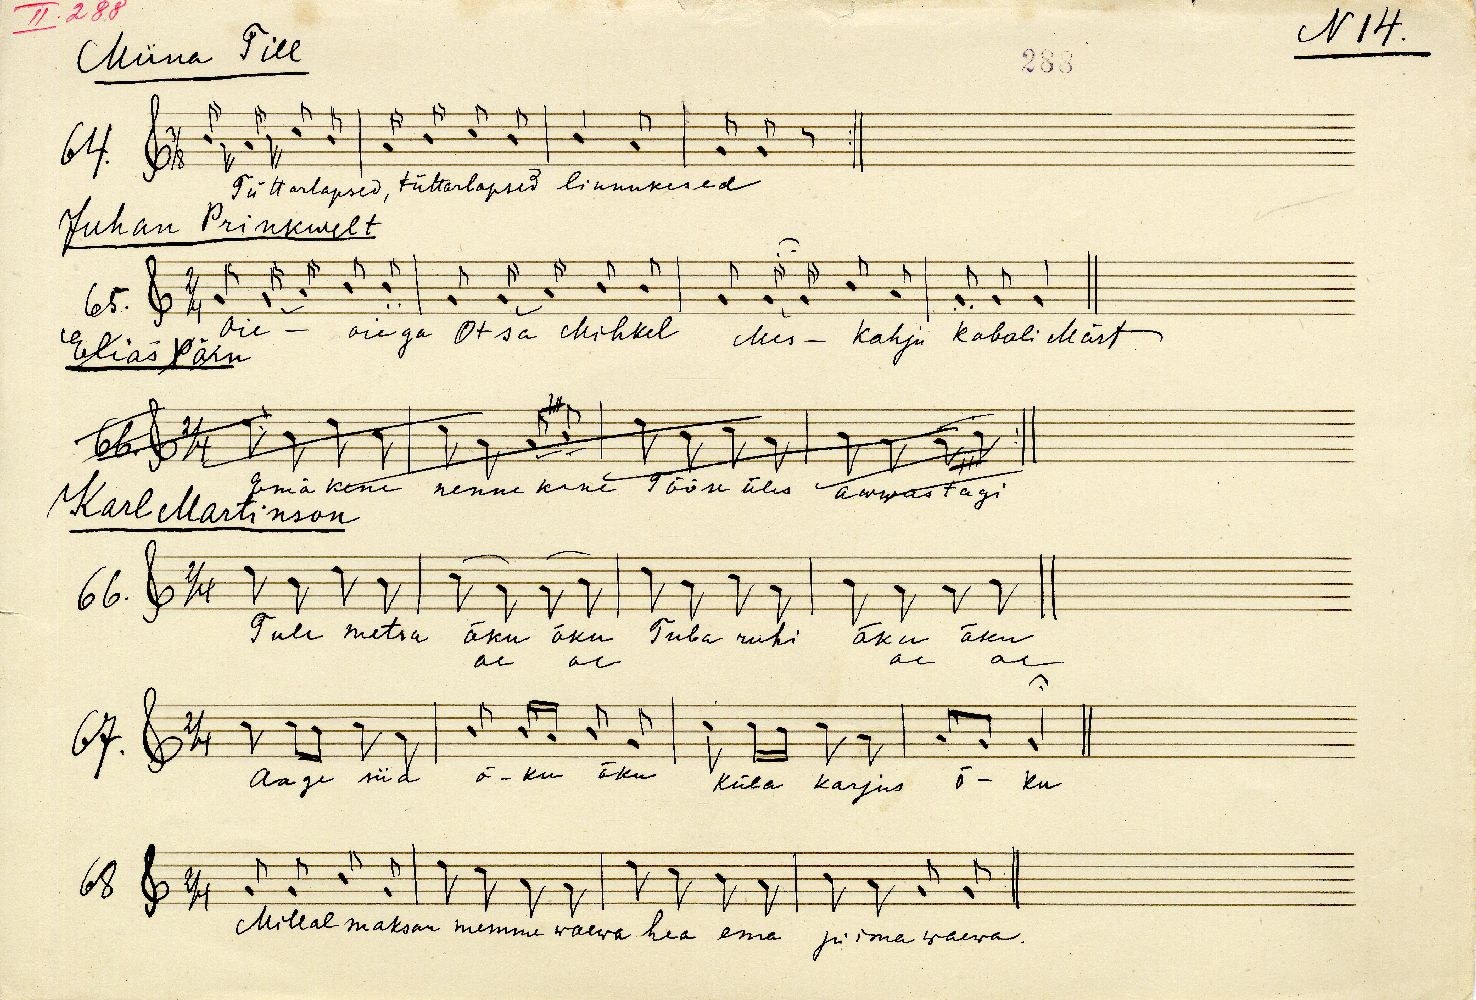 II. 288
Miina Till
N 14.
288
64.
Tüttarlapsed, tüttarlapsed linnukesed
Juhan Prinkwelt
65.
Oie – oiega Otsa Mihkel Mes – kahju kabali Märt
Elias Pärn
66.
Emäkene nennekene Tööse üles awwastagi
Karl Martinson
66.
Tule metsa õku õku Tuba ruhi õku õku
oe oe oe oe
67.
Aage siia õ – ku õku Küla karjus õ – ku
68
Millal maksan memme waewa hea ema piima waewa.